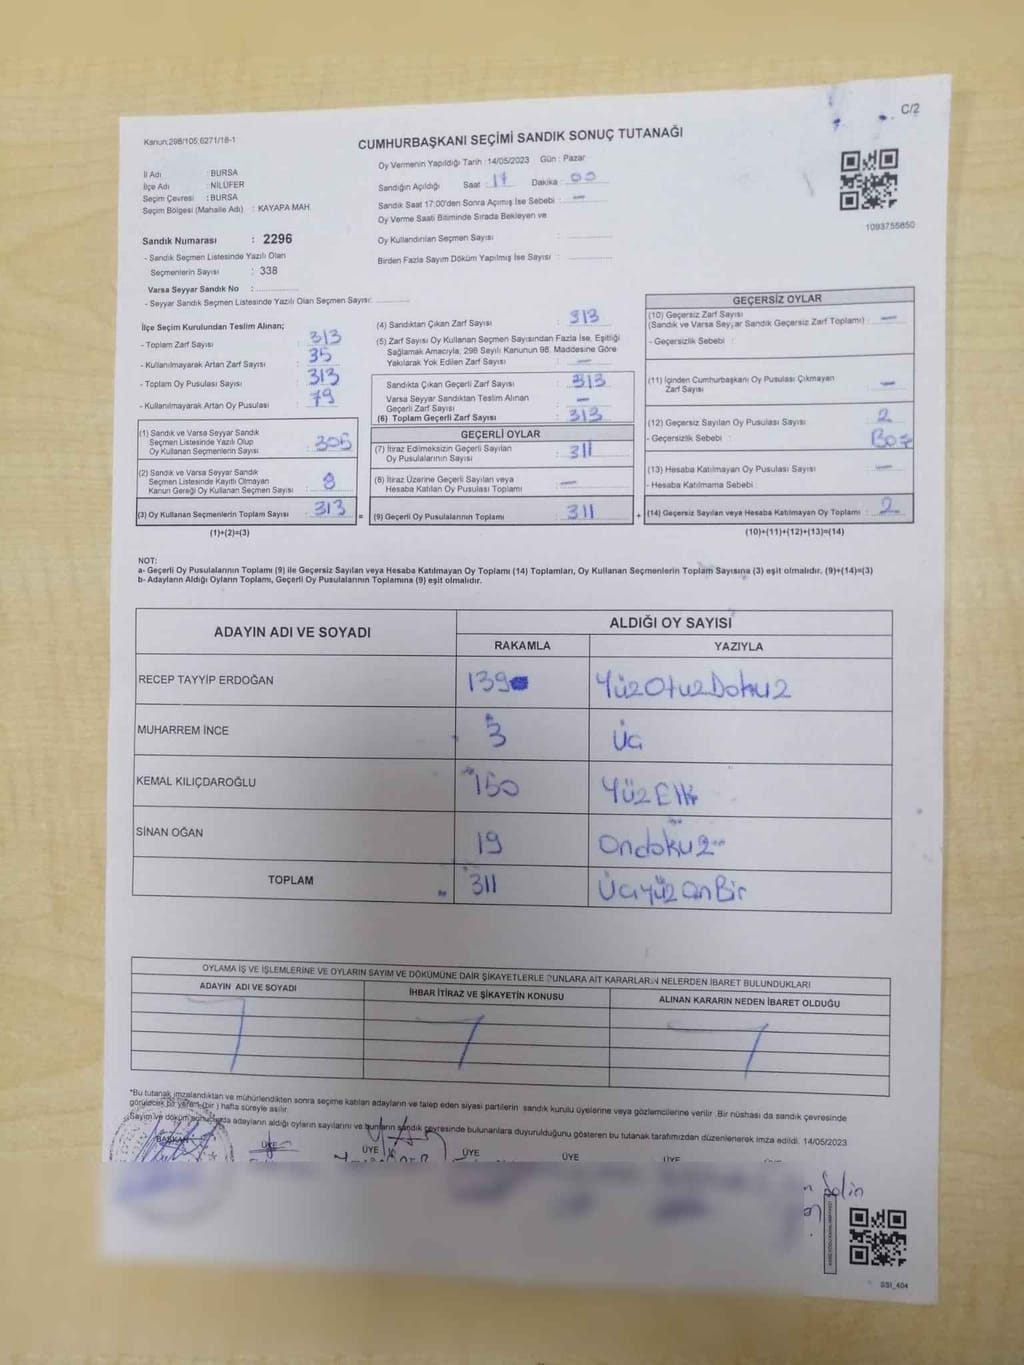 C/2
Kanun:298/105,6271/18-1
CUMHURBAŞKANI SEÇİMİ SANDIK SONUÇ TUTANAĞI
İl Adı : BURSA
İlçe Adı : NİLÜFER
Seçim Çevresi : BURSA
Seçim Bölgesi (Mahalle Adı) : KAYAPA MAH.
Sandık Numarası : 2296
- Sandık Seçmen Listesinde Yazılı Olan
Seçmenlerin Sayısı : 338
Varsa Seyyar Sandık No :
- Seyyar Sandık Seçmen Listesinde Yazılı Olan Seçmen Sayısı:
Oy Vermenin Yapıldığı Tarih : 14/05/2023 Gün : Pazar
Sandığın Açıldığı Saat : 17 Dakika : 00
Sandık Saat 17:00'den Sonra Açımış İse Sebebi : —
Oy Verme Saati Bitiminde Sırada Bekleyen ve
Oy Kullandırılan Seçmen Sayısı :
Birden Fazla Sayım Döküm Yapılmış İse Sayısı :
1093755650
İlçe Seçim Kurulundan Teslim Alınan;
- Toplam Zarf Sayısı : 313
- Kullanılmayarak Artan Zarf Sayısı : 35
- Toplam Oy Pusulası Sayısı : 313
- Kullanılmayarak Artan Oy Pusulası : 79
(1) Sandık ve Varsa Seyyar Sandık
Seçmen Listesinde Yazılı Olup
Oy Kullanan Seçmenlerin Sayısı : 305
(2) Sandık ve Varsa Seyyar Sandık
Seçmen Listesinde Kayıtlı Olmayan
Kanun Gereği Oy Kullanan Seçmen Sayısı : 8
(3) Oy Kullanan Seçmenlerin Toplam Sayısı : 313
(1)+(2)=(3)
(4) Sandıktan Çıkan Zarf Sayısı : 313
(5) Zarf Sayısı Oy Kullanan Seçmen Sayısından Fazla İse, Eşitliği
Sağlamak Amacıyla, 298 Sayılı Kanunun 98. Maddesine Göre
Yakılarak Yok Edilen Zarf Sayısı : —
Sandıkta Çıkan Geçerli Zarf Sayısı : 313
Varsa Seyyar Sandıktan Teslim Alınan
Geçerli Zarf Sayısı : —
(6) Toplam Geçerli Zarf Sayısı : 313
GEÇERLİ OYLAR
(7) İtiraz Edilmeksizin Geçerli Sayılan
Oy Pusulalarının Sayısı : 311
(8) İtiraz Üzerine Geçerli Sayılan veya
Hesaba Katılan Oy Pusulası Toplamı : —
= (9) Geçerli Oy Pusulalarının Toplamı : 311 +
GEÇERSİZ OYLAR
(10) Geçersiz Zarf Sayısı
(Sandık ve Varsa Seyyar Sandık Geçersiz Zarf Toplamı) : —
- Geçersizlik Sebebi :
(11) İçinden Cumhurbaşkanı Oy Pusulası Çıkmayan
Zarf Sayısı : —
(12) Geçersiz Sayılan Oy Pusulası Sayısı : 2
- Geçersizlik Sebebi :
(13) Hesaba Katılmayan Oy Pusulası Sayısı : —
- Hesaba Katılmama Sebebi :
(14) Geçersiz Sayılan veya Hesaba Katılmayan Oy Toplamı : 2
(10)+(11)+(12)+(13)=(14)
NOT:
a- Geçerli Oy Pusulalarının Toplamı (9) ile Geçersiz Sayılan veya Hesaba Katılmayan Oy Toplamı (14) Toplamları, Oy Kullanan Seçmenlerin Toplam Sayısına (3) eşit olmalıdır. (9)+(14)=(3)
b- Adayların Aldığı Oyların Toplamı, Geçerli Oy Pusulalarının Toplamına (9) eşit olmalıdır.
ADAYIN ADI VE SOYADI ALDIĞI OY SAYISI
RAKAMLA YAZIYLA
RECEP TAYYİP ERDOĞAN 139 YüzOtuzDokuz
MUHARREM İNCE 3 Üç
KEMAL KILIÇDAROĞLU 150 YüzElli
SİNAN OĞAN 19 Ondokuz
TOPLAM 311 ÜçyüzonBir
OYLAMA İŞ VE İŞLEMLERİNE VE OYLARIN SAYIM VE DÖKÜMÜNE DAİR ŞİKAYETLERLE BUNLARA AİT KARARLARIN NELERDEN İBARET BULUNDUKLARI
ADAYIN ADI VE SOYADI İHBAR İTİRAZ VE ŞİKAYETİN KONUSU ALINAN KARARIN NEDEN İBARET OLDUĞU
*Bu tutanak imzalandıktan ve mühürlendikten sonra seçime katılan adayların ve talep eden siyasi partilerin sandık kurulu üyelerine veya gözlemcilerine verilir. Bir nüshası da sandık çevresinde
görülecek bir yere (bir) hafta süreyle asılır.
Sayım ve döküm sonucunda adayların aldığı oyların sayılarını ve bunların sandık çevresinde bulunanlara duyurulduğunu gösteren bu tutanak tarafımızdan düzenlenerek imza edildi. 14/05/2023
BAŞKAN ÜYE ÜYE ÜYE ÜYE ÜYE
SS1_404